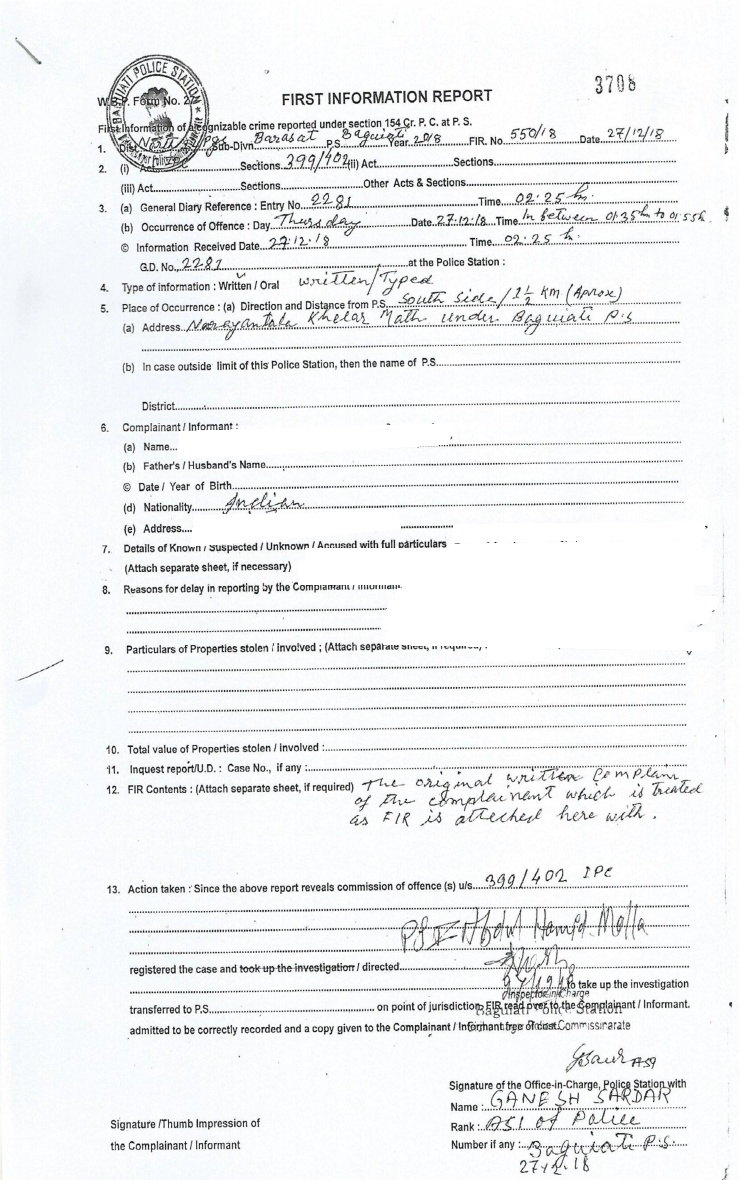 3708
BAGUIATI POLICE STATION
W.B.P. Form No. 27
FIRST INFORMATION REPORT
First Information of a cognizable crime reported under section 154 Cr. P. C. at P. S.
1. Dist. North Pgs Sub-Divn. Barasat P.S. Baguiati Year 2018 FIR. No. 550/18 Date 27/12/18
2. (i) Act Sections 399/402 (ii) Act Sections
(iii) Act Sections Other Acts & Sections
3. (a) General Diary Reference : Entry No. 2281 Time 02:25 hr.
(b) Occurrence of Offence : Day Thursday Date 27.12.18 Time In between 01:35h to 01:55h
© Information Received Date 27.12.18 Time 02:25 h.
G.D. No. 2281 at the Police Station :
4. Type of information : Written / Oral written/Typed
5. Place of Occurrence : (a) Direction and Distance from P.S. South side/1½ KM (Aprox)
(a) Address Narayantala Khelar Math under Baguiati P.S
(b) In case outside limit of this Police Station, then the name of P.S.
District
6. Complainant / Informant :
(a) Name
(b) Father's / Husband's Name
© Date / Year of Birth
(d) Nationality Indian
(e) Address
7. Details of Known / Suspected / Unknown / Accused with full particulars
(Attach separate sheet, if necessary)
8. Reasons for delay in reporting by the Complainant / Informant
9. Particulars of Properties stolen / involved ; (Attach separate sheet, if required) :
10. Total value of Properties stolen / involved :
11. Inquest report/U.D. : Case No., if any :
12. FIR Contents : (Attach separate sheet, if required) The original written Complain
of the complainent which is treated
as FIR is atteched here with.
13. Action taken : Since the above report reveals commission of offence (s) u/s. 399/402 IPC
PSI Abdul Hamid Molla
registered the case and took up the investigation / directed
to take up the investigation
Inspector-in-Charge
transferred to P.S. on point of jurisdiction FIR read over to the Complainant / Informant.
Baguiati Police Station
admitted to be correctly recorded and a copy given to the Complainant / Informant free of cost.
Commissinarate
ASI
Signature of the Office-in-Charge, Police Station with
Name : GANESH SARDAR
Rank : ASI of Police
Number if any : Baguiati P.S.
27.12.18
Signature /Thumb Impression of
the Complainant / Informant